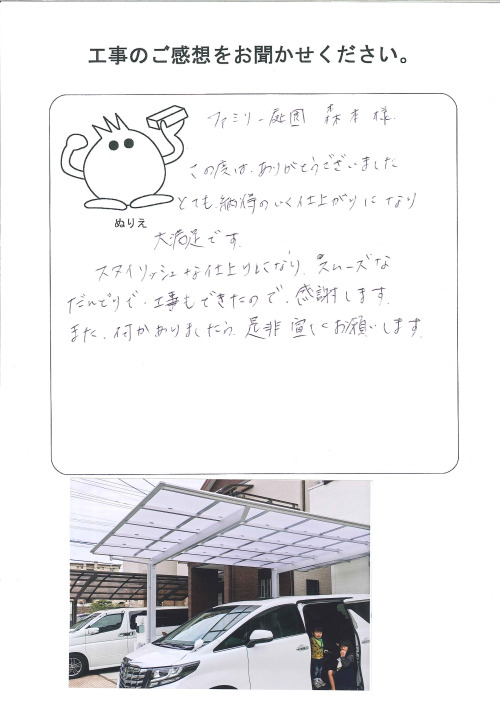 工事のご感想をお聞かせください。
ファミリー庭園 森本様.
この度は、ありがとうございました
とても納得のいく仕上がりになり
ぬりえ
大満足です。
スタイリッシュな仕上りになり、スムーズな
だんどりで、工事もできたので、感謝します。
また、何かありましたら、是非宜しくお願いします。